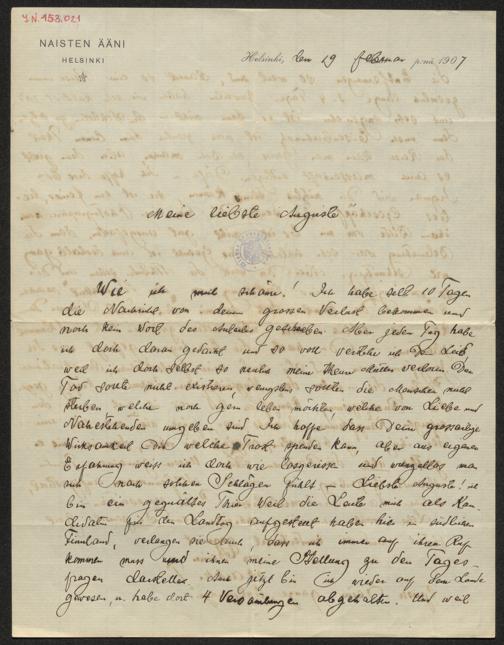 J.N. 153.021
NAISTEN ÄÄNI
HELSINKI
Helsinki, den 19 februar p:nä 1907
Meine liebste Auguste
Wie ich mich schäme! Ich habe seit 10 Tagen
die Nachricht von deinem grossen Verlust bekommen und
noch kein Wort des Anteils geschrieben. Aber jeden Tag habe
ich doch daran gedacht und so voll verstehe ich Dein Leid,
weil ich doch selbst so neulich meine theure Mutter verloren. Der
Tod sollte nicht existieren, wenigstens sollten die Menschen nicht
sterben, welche noch gern leben möchten, welche von Liebe und
Nahestehenden umgeben sind. Ich hoffe dass Dein grossartige
Wirksamkeit Dir welche Trost spenden kann, aber aus eigener
Erfahrung weiss ich doch wie losgerissen und wurzellos man
sich nach solchen Schlägen fühlt – Liebste Auguste! ich
bin ein gequältes Thier. Weil die Leute mich als Kan-
didatin für den Landtag aufgestellt haben hier in südlichen
Finnland, verlangen sie auch, dass ich immer auf ihren Ruf
kommen muss und ihnen meine Stellung zu den Tages-
fragen darstellen. Auch jetzt bin ich wieder auf dem Lande
gewesen, u. habe dort 4 Versamlungen abgehalten. Und weil